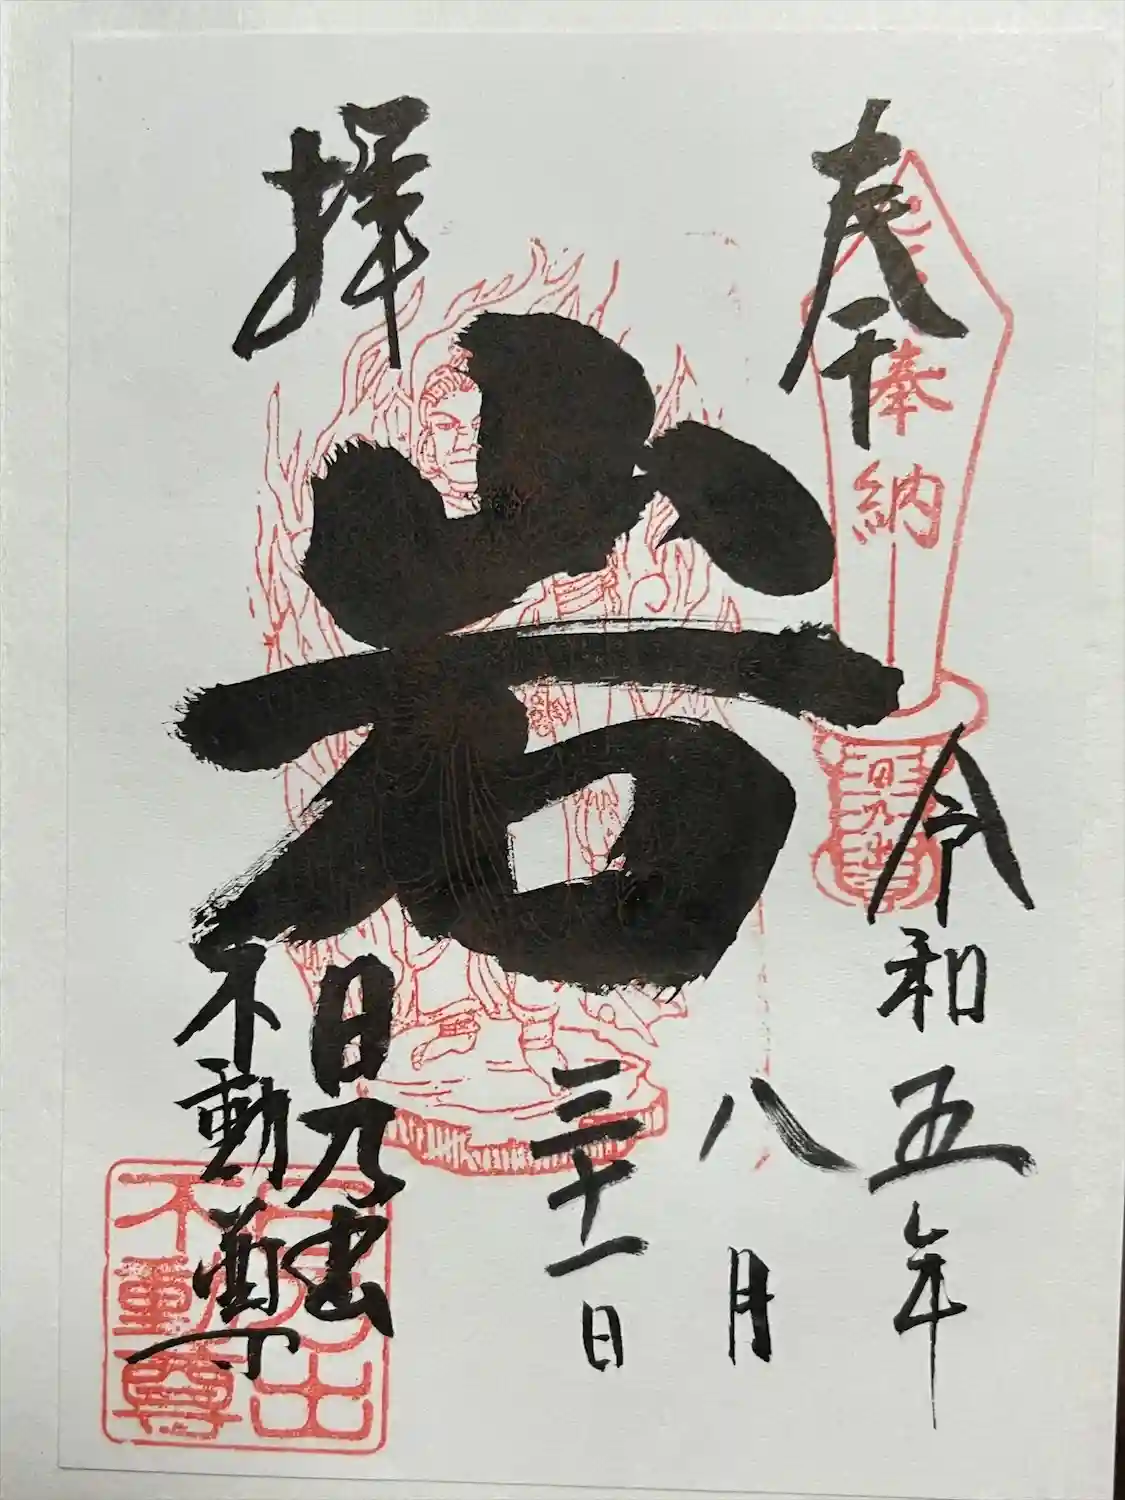 奉
拝
奉納
岩
令和五年
八月
三十一日
日乃出
不動尊
日乃出
不動尊